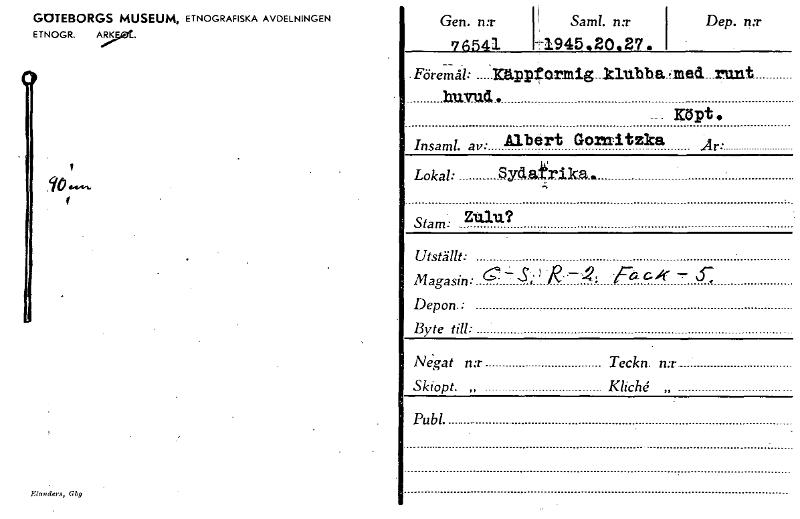 GÖTEBORGS MUSEUM, ETNOGRAFISKA AVDELNINGEN
ETNOGR. ARKEOL.
90 cm
Elanders, Gbg
Gen. n:r Saml. n:r Dep. n:r
76541 1945.20.27.
Föremål: Käppformig klubba med runt
huvud.
Köpt.
Insaml. av: Albert Gomitzka År:
Lokal: Sydafrika.
Stam: Zulu?
Utställt:
Magasin: G-S. R-2. Fack-5.
Depon.:
Byte till:
Negat n:r Teckn. n:r
Skiopt. „ Kliché „
Publ.